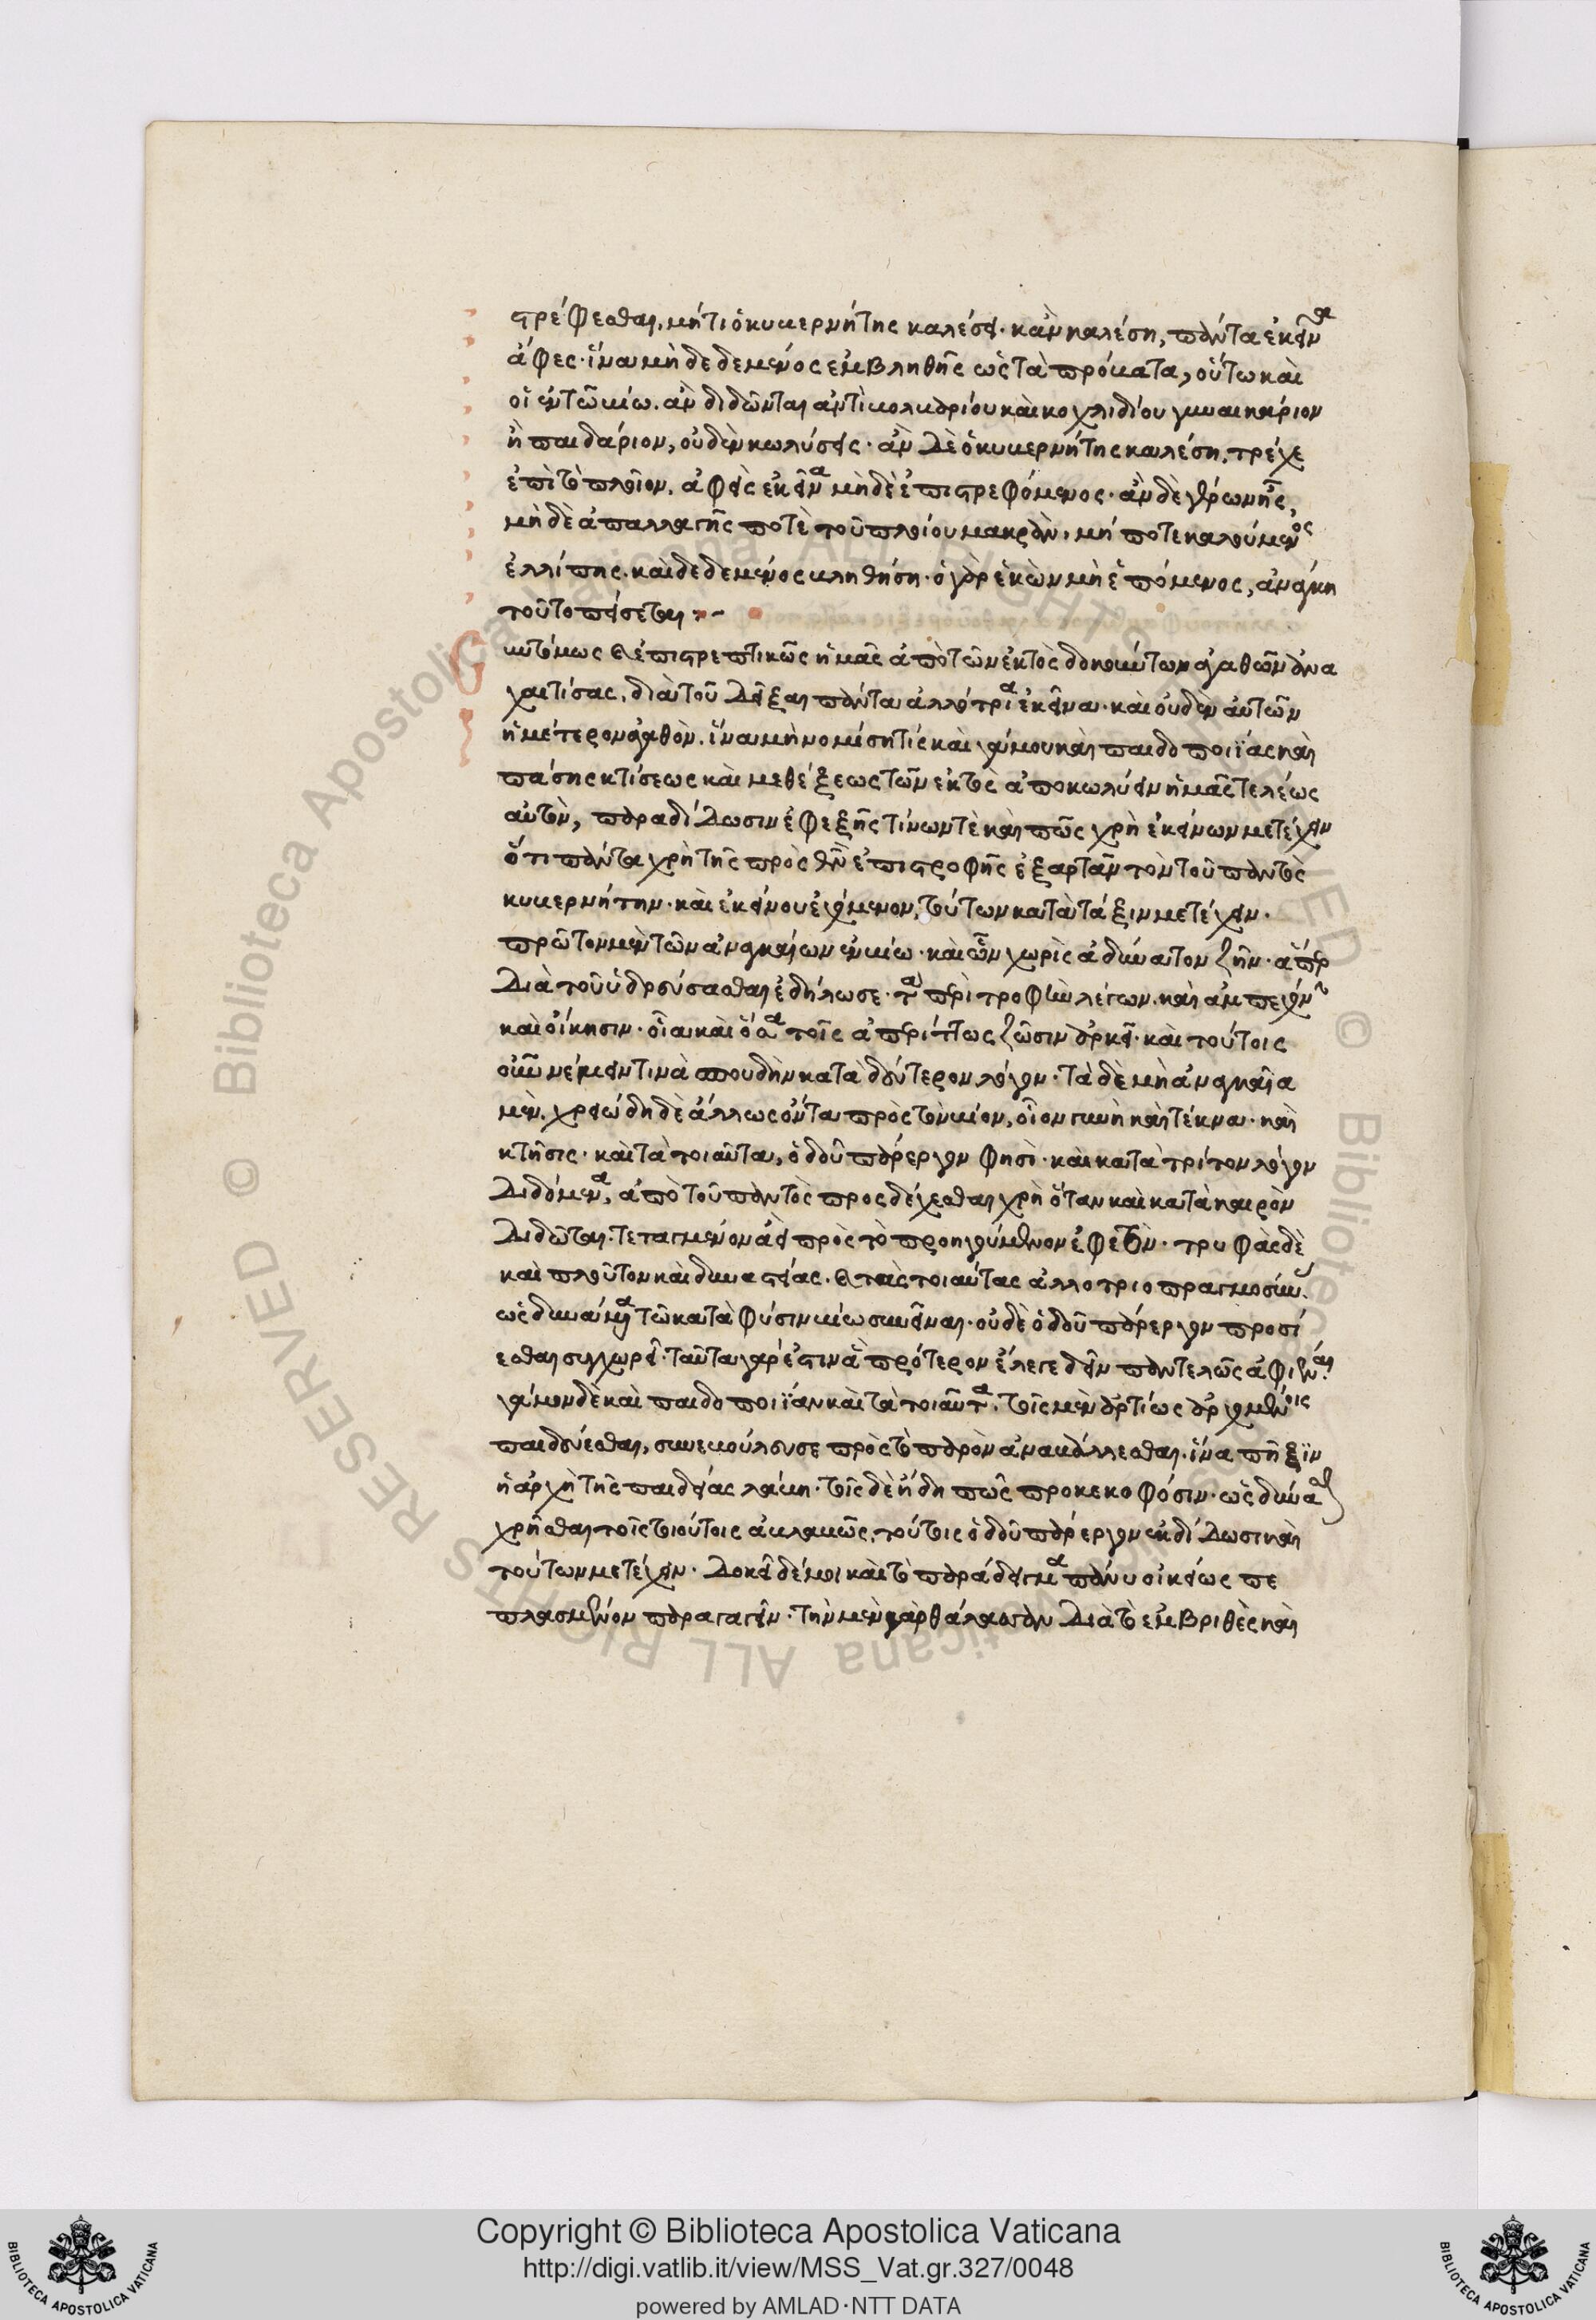 στρέφεσθαι, μήτι ὁ κυβερνήτης καλέσει. κἂν καλέση, πάντα ἐκεῖνα
ἄφες. ἵνα μὴ δεδεμένος ἐμβληθῆς ὡς τὰ πρόβατα, οὕτω καὶ
οἱ ἐν τῶ βίω. ἂν διδῶνται ἀντὶ βολβαρίου καὶ κοχλιδίου γυναικάριον
ἢ παιδάριον, οὐδὲν κωλύσει. ἂν δὲ ὁ κυβερνήτης καλέση, τρέχε
ἐπὶ τὸ πλοῖον, ἀφεὶς ἐκεῖνα μὴ δὲ ἐπιστρεφόμενος. ἂν δὲ γέρων ἦς,
μὴ δὲ ἀπαλλαγῆς ποτὲ τοῦ πλοίου μακρὰν, μή ποτε καλούμενος
ἐλλίπης. καὶ δεδεμένος βληθήση. ὁ γὰρ ἑκὼν μὴ ἑπόμενος, ἀνάγκη
τοῦτο πείσεται :~
ἐντόμως καὶ ἐπιστρεπτικῶς ἡμᾶς ἀπὸ τῶν ἐκτὸς δοκούντων ἀγαθῶν ἀνα
χαιτίσας, διὰ τοῦ δεῖξαι πάντα ἀλλότρια ἐκεῖνα. καὶ οὐδὲν αὐτῶν
ἡμέτερον ἀγαθὸν. ἵνα μὴ νομίση τὶς καὶ γάμου καὶ παιδοποιΐας καὶ
πάσης κτίσεως καὶ μεθέξεως τῶν ἐκτὸς ἀποκωλύειν ἡμᾶς τελέως
αὐτὸν, παραδίδωσιν ἐφεξῆς τίνων τὲ καὶ πῶς χρὴ ἐκείνων μετέχειν
ὅτι πάντα χρὴ τῆς πρὸς θεὸν ἐπιστροφῆς ἐξαρτᾶν τὸν τοῦ παντὸς
κυβερνήτην. καὶ ἐκείνου ἐχόμενον, τούτων κατὰ τάξιν μετέχειν.
πρῶτον μὲν τῶν ἀναγκαίων ἐν βίω. καὶ ὧν χωρὶς ἀδύνατον ζῆν. ἅπερ
διὰ τοῦ ὑδρεύσασθαι ἐδήλωσε. τὰ περὶ τροφὴν λέγων. καὶ ἀμπεχόνην
καὶ οἴκησιν. οἷα καὶ ὅσα τοῖς ἀπερίττως ζῶσιν ἀρκεῖ. καὶ τούτοις
οὖν νέμειν τινὰ σπουδὴν κατὰ δεύτερον λόγον. τὰ δὲ μὴ ἀναγκαῖα
μὲν, χρειώδη δὲ ἄλλως ὄντα πρὸς τὸν βίον, οἷον γυνὴ καὶ τέκνα. καὶ
κτῆσις. καὶ τὰ τοιαῦτα, ὁδοῦ πάρεργον φησὶ. καὶ κατὰ τρίτον λόγον
διδόμενα, ἀπὸ τοῦ παντὸς προσδέχεσθαι χρὴ ὅταν καὶ κατὰ καιρὸν
διδῶται. τεταγμένον ἀεὶ πρὸς τὸ προηγούμενον ἐφετὸν. τρυφὰς δὲ
καὶ πλοῦτον καὶ δυναστείας. καὶ τὰς τοιαύτας ἀλλοτριοπραγμοσύνας
ὡς δυνάμενα τῶ κατὰ φύσιν βίω συνεῖναι. οὐδὲ ὁδοῦ πάρεργον προσί
εσθαι συγχωρεῖ. ταῦτα γάρ ἐστιν ἃ πρότερον ἔλεγε δεῖν παντελῶς ἀφιέναι
γάμον δὲ καὶ παιδοποιΐαν καὶ τὰ τοιαῦτα. τοῖς μὲν ἀρτίως ἀρχομένοις
παιδεύεσθαι, συνεβούλευσε πρὸς τὸ παρὸν ἀναβάλλεσθαι. ἵνα πῆξιν
ἡ ἀρχὴ τῆς παιδείας λάβη. τοῖς δὲ ἤδη πῶς προκεκοφόσιν. ὡς δυναμένοις
χρῆσθαι τοῖς τοιούτοις ἀβλαβῶς, τούτοις ὁδοῦ πάρεργον ἐκδίδωσι καὶ
τούτων μετέχειν. δοκεῖ δέ μοι καὶ τὸ παράδειγμα πάνυ οἰκείως πε
πλασμένον παραγαγεῖν. τὴν μὲν γὰρ θάλασσαν διὰ τὸ ἐμβριθὲς καὶ
Copyright © Biblioteca Apostolica Vaticana
http://digi.vatlib.it/view/MSS_Vat.gr.327/0048
powered by AMLAD·NTT DATA
BIBLIOTECA APOSTOLICA VATICANA
BIBLIOTECA APOSTOLICA VATICANA